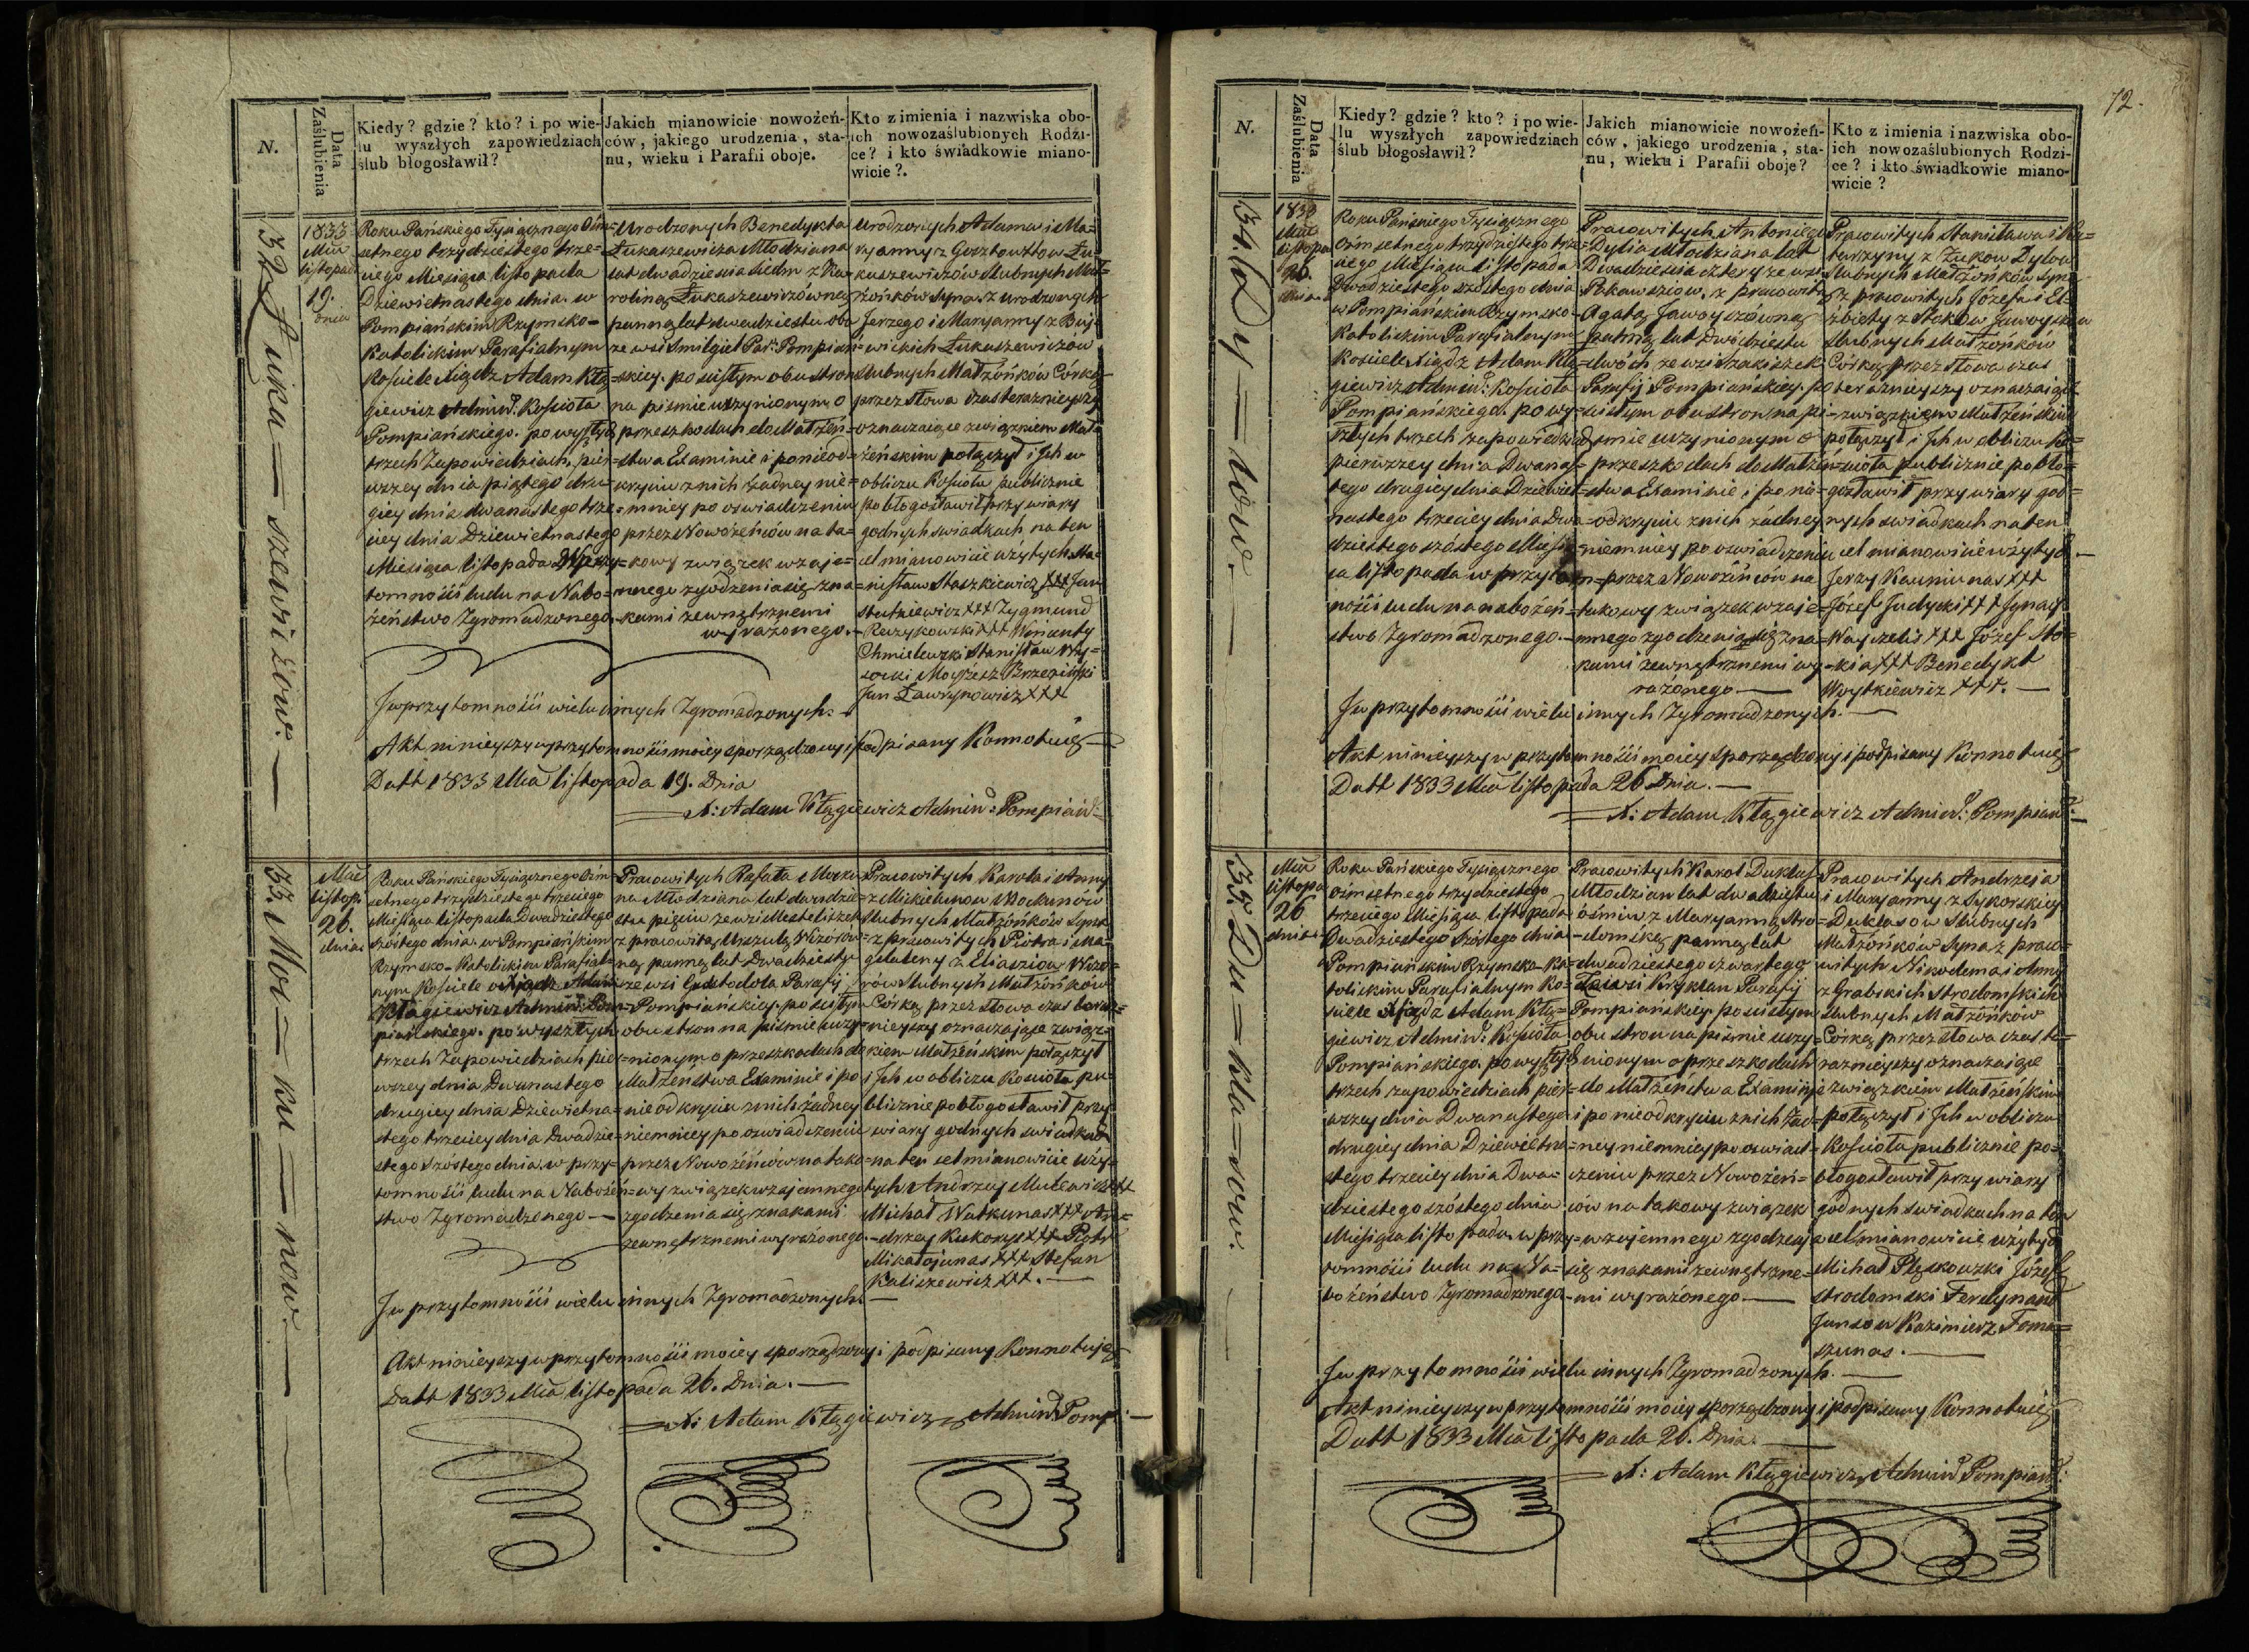 N.
Data Zaślubienia
Kiedy? gdzie? kto? i po wie-
lu wyszłych zapowiedziach
ślub błogosławił?
Jakich mianowicie nowożeń-
ców, jakiego urodzenia, sta-
nu, wieku i Parafii oboje.
Kto z imienia i nazwiska obo-
ich nowozaślubionych Rodzi-
ce? i kto świadkowie miano-
wicie?.
32. Łuka=szewiczów.—
1833
Mca
listopad
19.
dnia
Roku Pańskiego Tysiącznego Ośm=
setnego trzydziestego trze=
ciego Miesiąca listopada
Dziewietnastego dnia. w
Pompiańskim Rzymsko=
Katolickim Parafialnym
Kościele Xiądz Adam Kłą=
giewicz Admin: Kościoła
Pompiańskiego. po wyszłych
trzech Zapowiedziach, pier=
wszey dnia piątego dru=
giey dnia dwanastego trze=
ciey dnia Dziewietnastego
Miesiąca listopada W przy=
tomności ludu na Nabo=
żeństwo Zgromadzonego
Urodzonych Benedykta
Łukaszewicza Młodziana
lat dwadziescia siedm z Ka=
roliną Łukaszewiczówną
panną lat dwadziestu obo
ze wsi Smilgiel Par: Pompiań=
skiey. po scisłym obustron
na pismie uczynionym o
przeszkodach do Małżeń=
stwa Examinie i ponieod=
kryciu z nich żadney nie=
mniey po oswiadczeniu
przez Nowożeńców na ta=
kowy związek wzaje=
mnego zgodzenia się zna=
kami zewnętrznemi
wyrażonego.—
Urodzonych Adama i Ma=
ryanny z Gosztowttow Łu=
kaszewiczów slubnych Mał=
żonków Syna. z urodzonych
Jerzego i Maryanny z Buj=
wickich Łukaszewiczow
slubnych Małżonków Córkę
przez słowa czas teraznieyszy
oznaczaiące związkiem Mał=
żeńskim połączył i Ich w
obliczu Kosciołu publicznie
pobłogosławił przy wiary
godnych swiadkach na ten
cel mianowicie użytych Sta=
nisław Staszkiewicz xxx Jan
Statkiewicz xxx Zygmund
Raczykowski xxx Wincenty
Chmielewski Stanisław Wy=
socki Moyżesz Brzeziński
Jan Ławrynowicz xxx
I w przytomności wielu innych Zgromadzonych.—
Akt ninieyszy w przytomności moiey sporządzony i podpisany Konnotuię—
Datt 1833 Mca listopada 19. Dnia
X: Adam Kłągiewicz Admin: Pompiań:
33. Moc=ku=now.—
Mca
listop:
26.
dnia
Roku Pańskiego Tysiącznego Ośm=
setnego trzydziestego trzeciego
Miesiąca listopada Dwadziestego
szóstego dnia. w Pompiańskim
Rzymsko-Katolickim Parafial=
nym Kościele Xiądz Adam
Kłągiewicz Admin: Pom=
piańskiego. po wyszłych
trzech Zapowiedziach pie=
wszey dnia Dwunastego
drugiey dnia Dziewietna=
stego trzeciey dnia Dwadzie=
stego szóstego dnia. w przy=
tomności ludu na Nabożeń=
stwo Zgromadzonego—
Pracowitych Rafała Mocku=
na Młodziana lat dwudzie=
stu pięciu ze wsi Mesteliszek
z pracowitą Urszulą Wizorów=
ną panną lat Dwadziestu
ze wsi Parafij
Pompiańskiey. po scisłym
obustron na pismie uczy=
nionym o przeszkodach do
Małżeństwa Examinie i po
nieodkryciu z nich żadney
niemniey po oswiadczeniu
przez Nowożeńców na tako=
wy związek wzajemnego
zgodzenia się znakami
zewnętrznemi wyrażonego.
Pracowitych Karola i Anny
z Mickiewiunow Mockunów
slubnych Małżonków Syna
z pracowitych Piotra i Ma=
gdaleny z Eliasziow Wizo=
rów slubnych Małżonków
Córkę przez słowa czas teraz=
nieyszy oznaczające związ=
kiem Małżeńskim połączył
i Ich w obliczu Kosciołu pu=
blicznie pobłogosławił przy
wiary godnych swiadkach
na ten cel mianowicie uży=
tych Andrzey Mulewicz xxx
Michał Watkunas xxx An=
drzey Kukorys xxx Piotr
Mikałojunas xxx Stefan
Kaliszewicz xxx.—
I w przytomności wielu innych Zgromadzonych—
Akt ninieyszy w przytomności moiey sporządzony i podpisany Konnotuję
Datt 1833 Mca listopada 26. Dnia.—
X: Adam Kłągiewicz Admin: Pomp:—
72.
N.
Data Zaślubienia
Kiedy? gdzie? kto? i po wie-
lu wyszłych zapowiedziach
ślub błogosławił?
Jakich mianowicie nowożeń-
ców, jakiego urodzenia, sta-
nu, wieku i Parafii oboje?
Kto z imienia i nazwiska obo-
ich nowozaślubionych Rodzi-
ce? i kto świadkowie miano-
wicie?
34. Dy=low.—
1833
Mca
listopa
26.
dnia
Roku Pańskiego Tysiącznego
Ośmsetnego trzydziestego trze=
ciego Miesiąca listopada
Dwadziestego szóstego dnia
w Pompiańskim Rzymsko=
Katolickim Parafialnym
Kosciele Xiądz Adam Kłą=
giewicz Admin: Kościoła
Pompiańskiego. po wy=
szłych trzech zapowiedziach
pierwszey dnia Dwanas=
tego drugiey dnia Dziewiet=
nastego trzeciey dnia Dwa=
dziestego szóstego Miesią=
ca listopada w przytom=
ności ludu na nabożeń=
stwo Zgromadzonego.—
Pracowitych Antoniego
Dyla Młodziana lat
Dwadziescia cztery ze wsi
Pokawsziow. z pracowitą
Agatą Jawoyszówną
panną lat Dwódziestu
dwóch ze wsi
Parafij Pompiańskiey. po
scisłym obustron na pi=
smie uczynionym o
przeszkodach do Małżeń=
stwa Examinie i po nie=
odkryciu z nich żadney
niemniey po oswiadczeniu
przez Nowożeńców na
takowy związek wzaje=
mnego zgodzenia się zna=
kami zewnętrznemi wy=
rażonego—
Pracowitych Stanisława i Ka=
tarzyny z Żukow Dylow
slubnych Małżonków Syna
z pracowitych Józefa i El=
żbiety z Stokow Jawoyszow
slubnych Małżonków
Córkę przez słowa czas
teraznieyszy oznaczaiące
związkiem Małżeńskim
połączył i Ich w obliczu Ko=
scioła publicznie pobło=
gosławił przy wiary god=
nych swiadkach na ten
cel mianowicie użytych—
Jerzy Kauniunas xxx
Józef Judycki xxx Ignacy
Wayczelis xxx Józef Sto=
kia xxx Benedykt
Woytkiewicz xxx.—
I w przytomności wielu innych Zgromadzonych.—
Akt ninieyszy w przytomności moiey sporządzony i podpisany Konnotuię
Datt 1833 Mca listopada 26 Dnia.—
X: Adam Kłągiewicz Admin: Pompiań:
35. Du=kla=sow.
Mca
listopa
26
dnia
Roku Pańskiego Tysiącznego
ośmsetnego trzydziestego
trzeciego Miesiąca listopada
Dwadziestego Szóstego dnia
Pompiańskim Rzymsko-Ka=
tolickim Parafialnym Ko=
sciele Xiądz Adam Kłą=
giewicz Admin: Kościoła
Pompiańskiego. po wyszłych
trzech zapowiedziach pier=
wszey dnia Dwanastego
drugiey dnia Dziewietna=
stego trzeciey dnia Dwa=
dziestego szóstego dnia
Miesiąca listopada. w przy=
tomności ludu na Na=
bożeństwo Zgromadzonego
Pracowitych Karol Duklas
Młodzian lat dwadziestu
ośmiu z Maryanną Stro=
domską panną lat
dwadziestego czwartego
Ze wsi Krykłan Parafij
Pompiańskiey. po scisłym
obustron na pismie uczy=
nionym o przeszkodach
do Małżeństwa Examinie
i po nieodkryciu z nich żad=
ney niemniey po oswiad=
czeniu przez Nowożeń=
ców na takowy związek
wzajemnego zgodzenia
się znakami zewnętrzne=
mi wyrażonego—
Pracowitych Andrzeja
i Maryanny z Sykorskich
Duklasow Slubnych
Małżonków Syna z praco=
witych Nikodema i Anny
z Grabskich Strodomskich
slubnych Małżonków
Córkę przez słowa czas te=
raznieyszy oznaczaiące
związkiem Małżeńskim
połączył i Ich w obliczu
Kosciołu publicznie po=
błogosławił przy wiary
godnych swiadkach na ten
cel mianowicie użytych
Michał Pląskowzki Józef
Strodomski Ferdynand
Junsow Kazimierz Toma=
szunas.—
I w przytomności wielu innych Zgromadzonych.—
Akt ninieyszy w przytomności moiey sporządzony i podpisany Konnotuię
Datt 1833 Mca listopada 26. Dnia.—
X: Adam Kłągiewicz Admin: Pompiań: